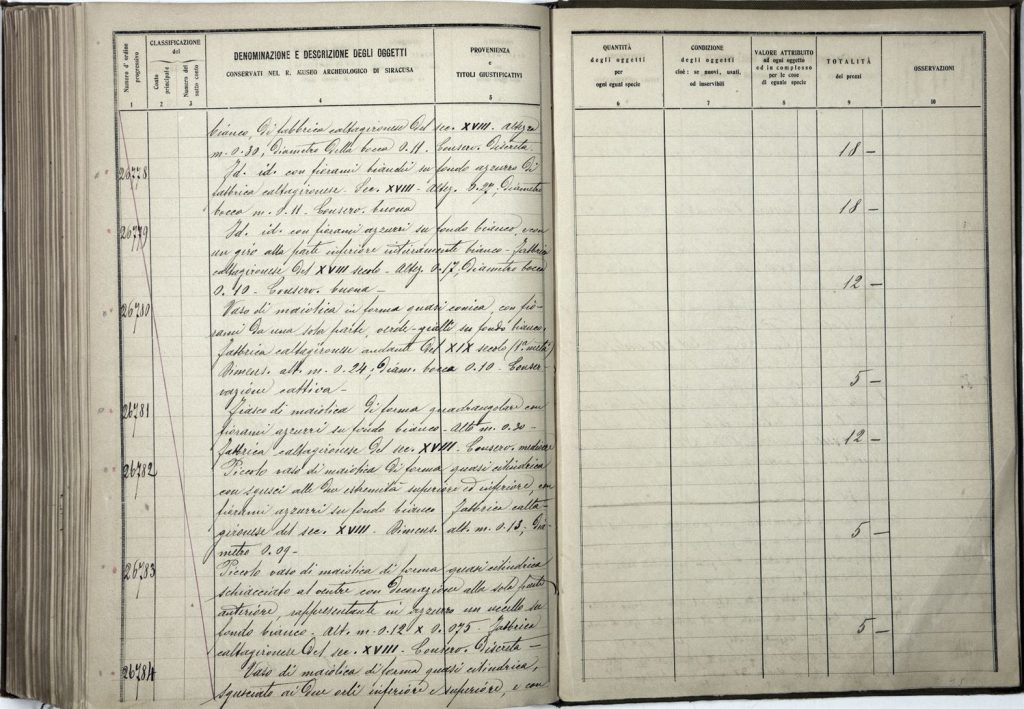 Numero d'ordine progressivo
CLASSIFICAZIONE
del
Conto principale
Numero del sotto conto
DENOMINAZIONE E DESCRIZIONE DEGLI OGGETTI
CONSERVATI NEL R. MUSEO ARCHEOLOGICO DI SIRACUSA
PROVENIENZA
e
TITOLI GIUSTIFICATIVI
1 2 3 4 5
bianco, di fabbrica caltagironese del sec. XVIII - altezza
m. 0.30; diametro della bocca 0.11. Conserv. Discreta.
26778 Id. id. con fiorami bianchi su fondo azzurro di
fabbrica caltagironese. Sec. XVIII - altez. 0.27; diametro
bocca m. 0.11 - Conserv. buona
26779 Id. id. con fiorami azzurri su fondo bianco, e con
un giro alla parte inferiore interamente bianco - Fabbrica
caltagironese del XVIII secolo - Altez. 0.17; diametro bocca
0.10 - Conserv. buona -
26780 Vaso di maiolica in forma quasi conica, con fio-
rami da una sola parte, verde-gialli su fondo bianco.
fabbrica caltagironese andante del XIX secolo (1ª metà)
Dimens. alt. m. 0.24; diam. bocca 0.10 - Conser-
vazione cattiva -
26781 Fiasco di maiolica di forma quadrangolare con
fiorami azzurri su fondo bianco - Alto m. 0.20 -
fabbrica caltagironese del sec. XVIII. Conserv. mediocre
26782 Piccolo vaso di maiolica di forma quasi cilindrica
con sgusci alle due estremità superiore ed inferiore, con
fiorami azzurri su fondo bianco - Fabbrica calta-
gironese del sec. XVIII. Dimens. alt. m. 0.13; dia-
metro 0.09 -
26783 Piccolo vaso di maiolica di forma quasi cilindrica
schiacciato al ventre con decorazione alla sola parte
anteriore, rappresentante in azzurro un uccello su
fondo bianco - Alt. m. 0.12 x 0.075 - Fabbrica
caltagironese del sec. XVIII. Conserv. Discreta -
26784 Vaso di maiolica di forma quasi cilindrica,
sgusciato ai due orli inferiore e superiore, e con
QUANTITÀ
degli oggetti
per
ogni egual specie
CONDIZIONE
degli oggetti
cioè: se nuovi, usati,
od inservibili
VALORE ATTRIBUITO
ad ogni oggetto
ed in complesso
per le cose
di eguale specie
TOTALITÀ
dei prezzi
OSSERVAZIONI
6 7 8 9 10
18 -
18 -
12 -
5 -
12 -
5 -
5 -